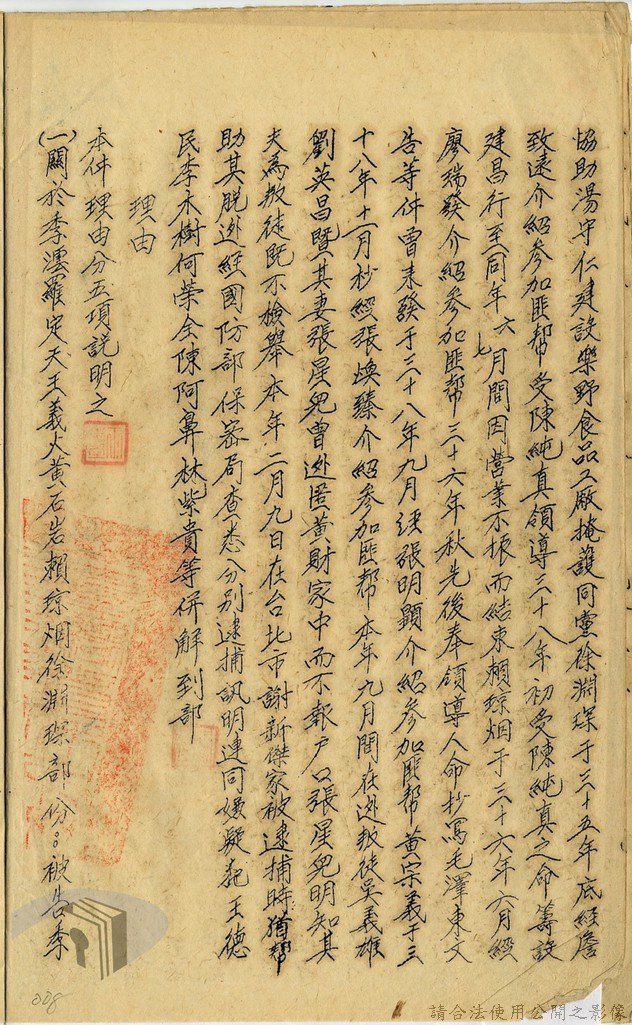 協助湯守仁建設樂野食品工廠掩護同黨徐淵琛于三十五年底經詹
致遠介紹參加匪幫受陳純真領導三十八年初受陳純真之命籌設
建昌行至同年六七月間因營業不振而結束賴琼烟于三十六年六月經
廖瑞發介紹參加匪幫三十六年秋先後奉領導人命抄寫毛澤東文
告等件曾未發于三十八年九月經張明顯介紹參加匪幫黃宗義于三
十八年十一月杪經張煥臻介紹參加匪幫本年九月間在逃叛徒吳義雄
劉英昌暨其妻張星兒曾逃匿黃財家中而不報户口張星兒明知其
夫為叛徒既不檢舉本年二月九日在台北市謝新傑家被逮捕時猶幫
助其脫逃經國防部保密局查悉分別逮捕訊明連同嫌疑犯王德
民李木樹何榮全陳阿鼻林紫貴等併解到部
理由
本件理由分五項説明之
(一)關於李漂羅定天王義火黃石岩賴琼烟徐淵琛部份：被告李
008
請合法使用公開之影像